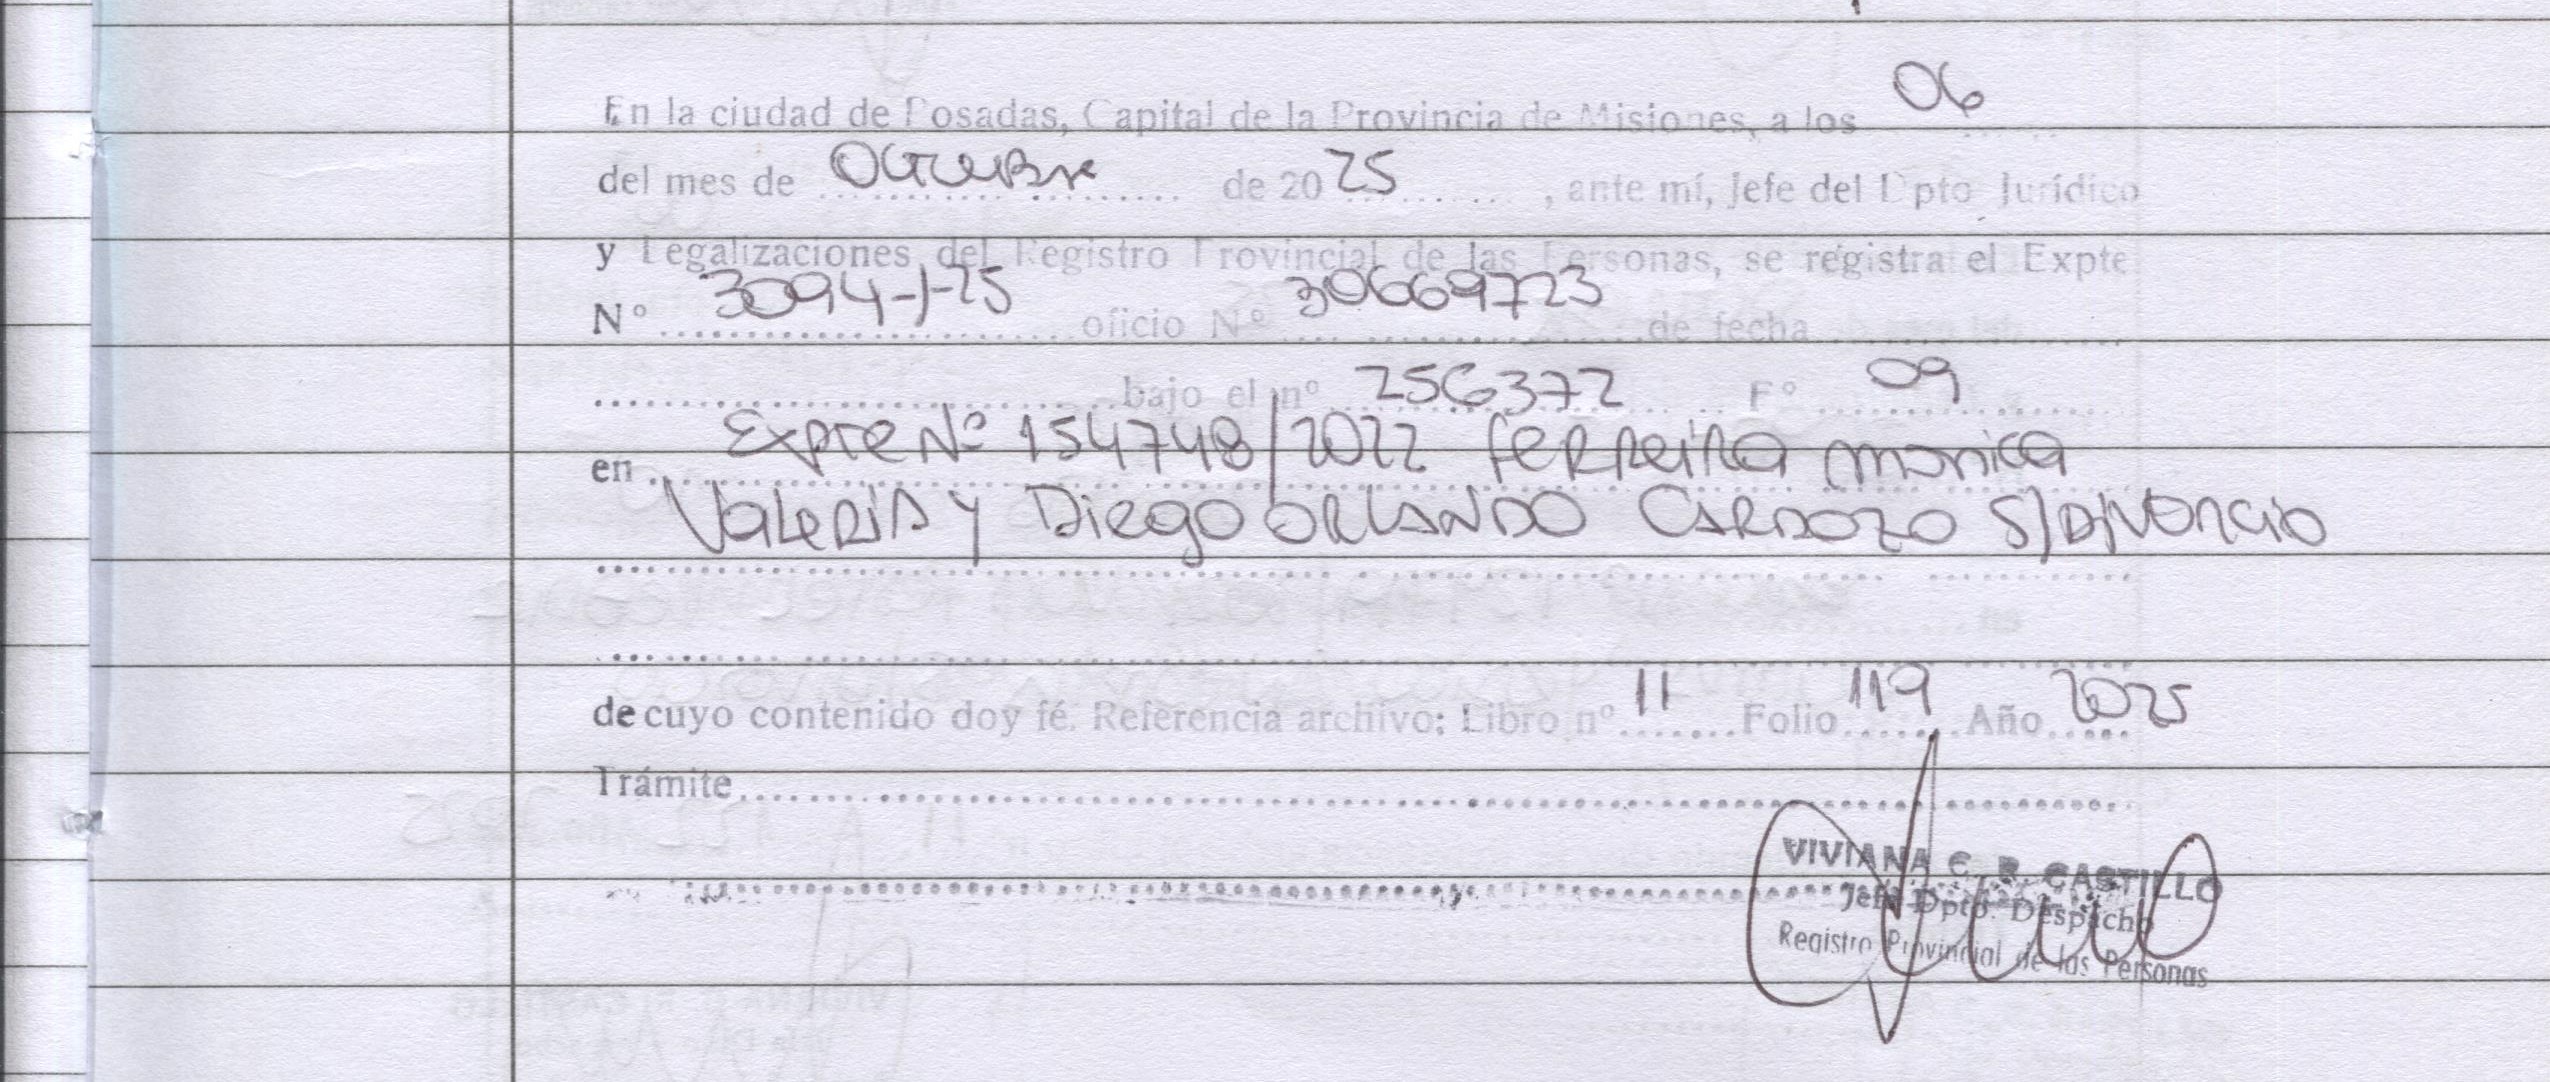 En la ciudad de Posadas, Capital de la Provincia de Misiones, a los 06
del mes de Octubre de 2025, ante mí, Jefe del Dpto Jurídico
y Legalizaciones del Registro Provincial de las Personas, se registra el Expte
N° 3094-J-25 oficio N° 30669723 de fecha
bajo el n° 256372 F° 09
en Expte N° 154748/2022 Ferreira Monica
Valeria y Diego Orlando Cardozo S/Divorcio
de cuyo contenido doy fé. Referencia archivo: Libro n° 11 Folio 119 Año 2025
Trámite
VIVIANA C. R. CASTILLO
Jefe Dpto. Despacho
Registro Provincial de las Personas